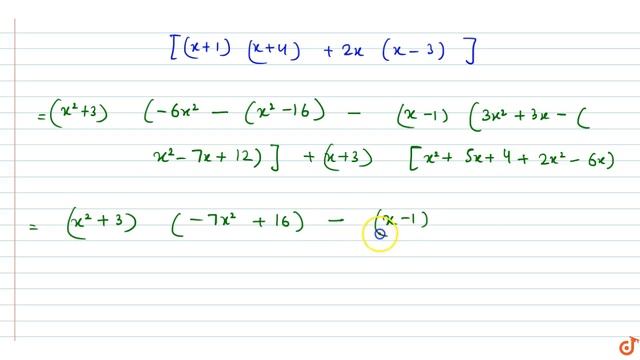 [(x+1) (x+4) + 2x (x-3) ]
= (x²+3) (-6x² - (x²-16) - (x-1) (3x² + 3x - (
x² - 7x + 12) ] + (x+3) [x² + 5x + 4 + 2x² - 6x)
= (x² + 3) (-7x² + 16) - (x-1)